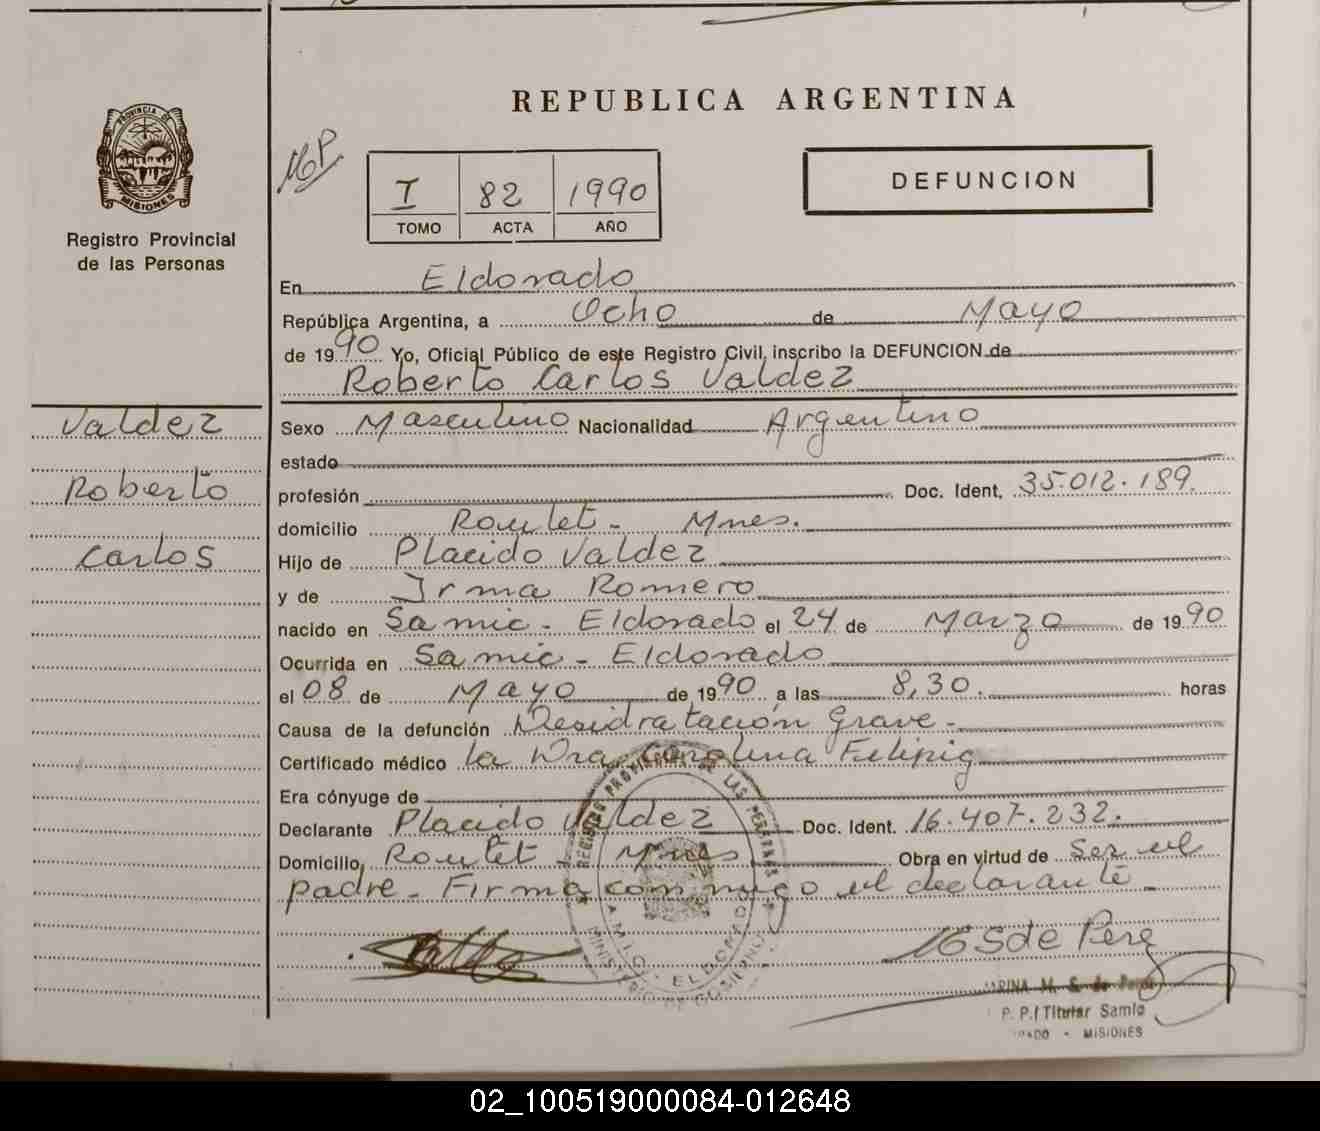 REPUBLICA ARGENTINA
PROVINCIA DE
MISIONES
Registro Provincial
de las Personas
I 82 1990
TOMO ACTA AÑO
DEFUNCION
En Eldorado
República Argentina, a Ocho de Mayo
de 1990 Yo, Oficial Público de este Registro Civil, inscribo la DEFUNCION de
Roberto Carlos Valdez
Valdez
Roberto
Carlos
Sexo Masculino Nacionalidad Argentino
estado
profesión Doc. Ident. 35.012.189.
domicilio Roulet - Mnes.
Hijo de Placido Valdez
y de Irma Romero
nacido en Samic - Eldorado el 24 de Marzo de 1990
Ocurrida en Samic - Eldorado
el 08 de Mayo de 1990 a las 8,30. horas
Causa de la defunción Desidratación grave -
Certificado médico la Dra. Carolina
Era cónyuge de
Declarante Placido Valdez Doc. Ident. 16.407.232.
Domicilio Roulet - Mnes Obra en virtud de ser el
padre - Firma con migo el declarante -
REGISTRO PROVINCIAL DE LAS PERSONAS
SAMIC - ELDORADO
MINISTERIO DE GOBIERNO
M. S. de Perez
P. P./ Titular Samic
- MISIONES
02_100519000084-012648